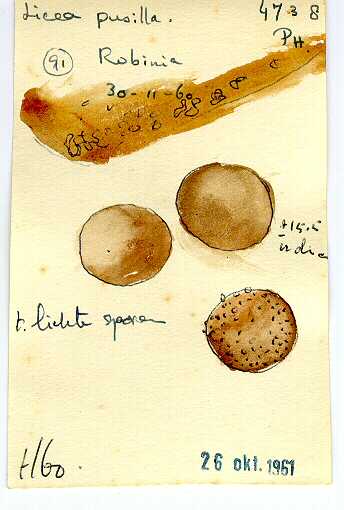 Licea pusilla. 4738
PH
91 Robinia
30-11-60
±15.5
t. lichte sporen
H60.
26 okt. 1961